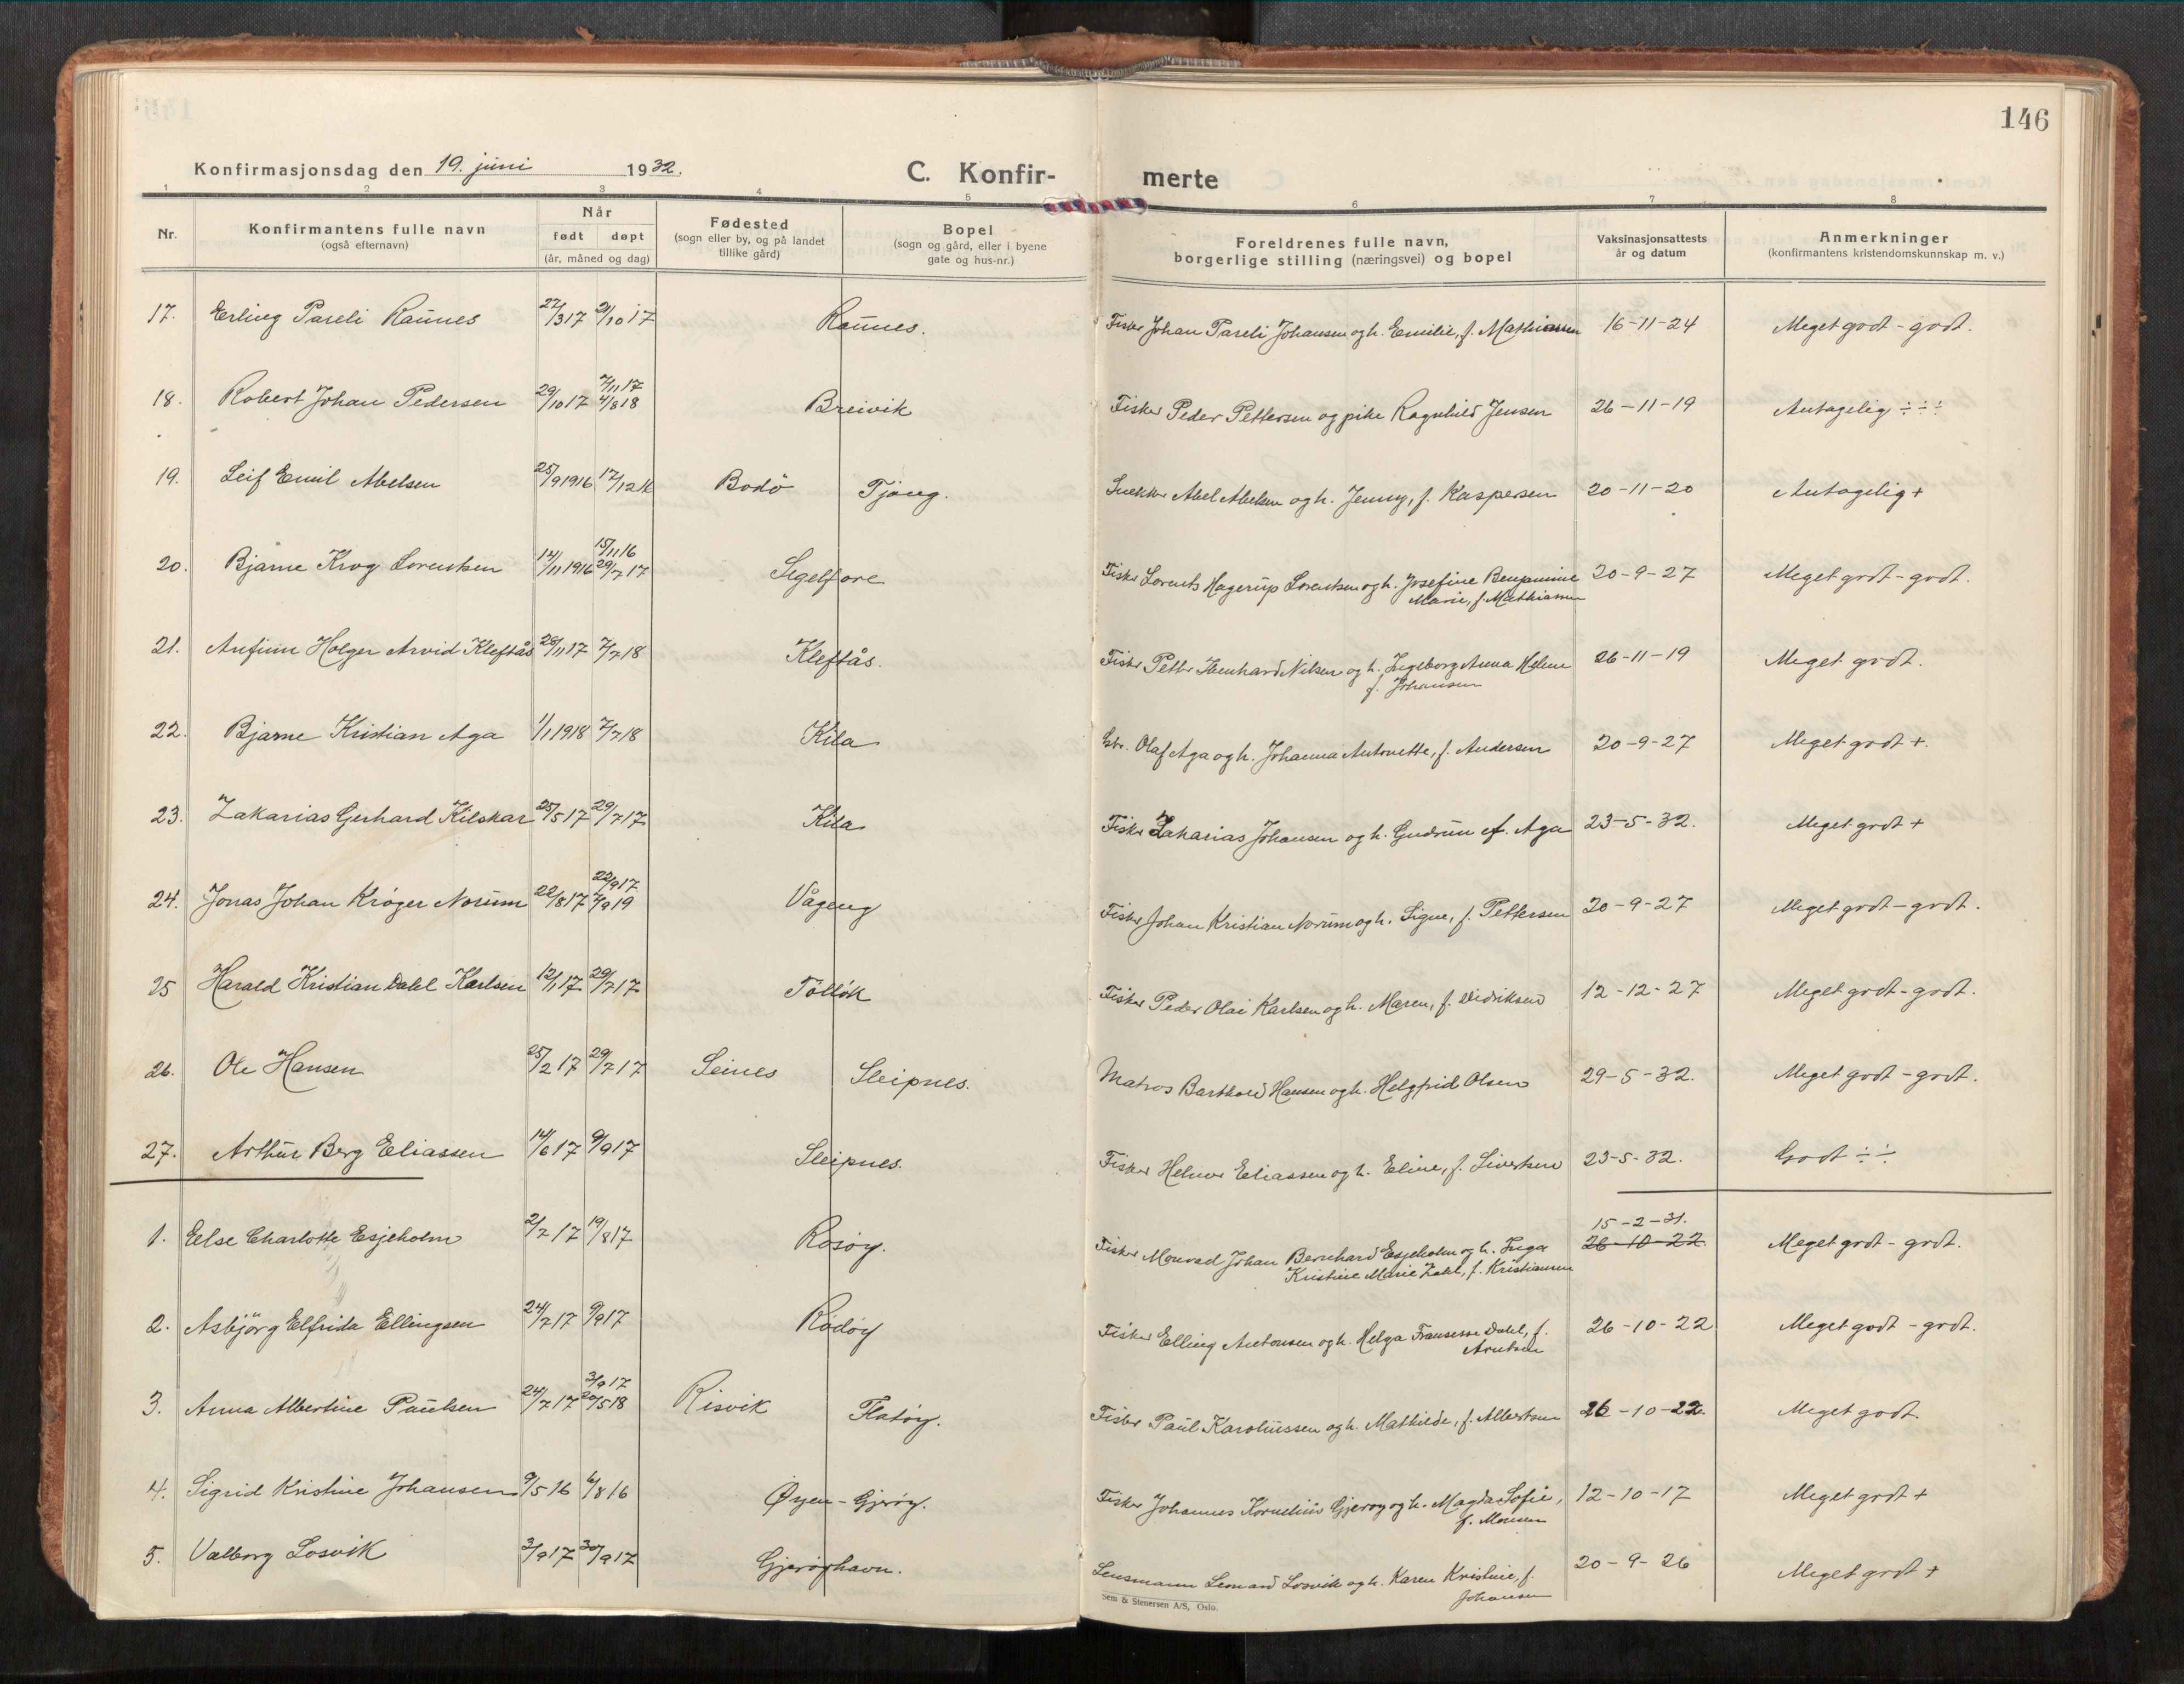 146
Konfirmasjonsdag den 19. juni 1932.
C. Konfir- merte
1 2 3 4 5 6 7 8
Nr.
Konfirmantens fulle navn
(også efternavn)
Når
født døpt
(år, måned og dag)
Fødested
(sogn eller by, og på landet
tillike gård)
Bopel
(sogn og gård, eller i byene
gate og hus-nr.)
Foreldrenes fulle navn,
borgerlige stilling (næringsvei) og bopel
Vaksinasjonsattests
år og datum
Anmerkninger
(konfirmantens kristendomskunnskap m. v.)
17. Erling Pareli Raunes 27/3 17 21/10 17 Raunes. Fisker Johan Pareli Johansen og h. Emilie, f. Mathiassen 16-11-24 Meget godt - godt.
7/11 17
18. Robert Johan Pedersen 29/10 17 4/8 18 Breivik Fisker Peder Pettersen og pike Ragnhild Jensen 26-11-19 Antagelig ÷÷÷
19. Leif Emil Abelsen 25/9 1916 17/12 16 Bodö Tjong. Snekker Abel Abelsen og h. Jenny, f. Kaspersen 20-11-20 Antagelig +
15/11 16
20. Bjarne Krog Lorentsen 14/11 1916 29/7 17 Segelfore Fisker Lorents Hagerup Lorentsen og h. Josefine Benjamine 20-9-27 Meget godt - godt.
Marie, f. Mathiassen
21. Anfinn Holger Arvid Kleftås 28/11 17 7/7 18 Kleftås. Fisker Petter Benhard Nilsen og h. Ingeborg Anna Helene 26-11-19 Meget godt.
f. Johansen
22. Bjarne Kristian Aga 1/1 1918 7/7 18 Kila Gbr. Olaf Aga og h. Johanna Antonette, f. Andersen 20-9-27 Meget godt +.
23. Zakarias Gerhard Kilskar 25/5 17 29/7 17 Kila Fisker Zakarias Johansen og h. Gudrun f. Aga 23-5-32. Meget godt +
22/9 17
24. Jonas Johan Kröger Norum 22/8 17 7/9 19 Vågeng Fisker Johan Kristian Norum og h. Signe, f. Pettersen 20-9-27 Meget godt - godt.
25 Harald Kristian Dahl Karlsen 12/1 17 29/7 17 Töllök Fisker Peder Olai Karlsen og h. Maren, f. Didriksen 12-12-27 Meget godt - godt.
26. Ole Hansen 25/2 17 29/7 17 Seines Sleipnes. Matros Barthold Hansen og h. Helgfrid Olsen 29-5-32. Meget godt - godt.
27. Arthur Berg Eliassen 14/6 17 9/9 17 Sleipnes. Fisker Helmer Eliassen og h. Eline, f. Sivertsen 23-5-32. Godt ÷÷
15-2-31.
1. Else Charlotte Esjeholm 2/7 17 19/8 17 Rosöy. Fisker Monrad Johan Bernhard Esjeholm og h. Inga 26-10-22. Meget godt - godt.
Kristine Marie Zahl, f. Kristiansen
2. Asbjörg Elfrida Ellingsen 24/7 17 9/9 17 Rödöy Fisker Elling Antonsen og h. Helga Fransesse Dahl, f. 26-10-22 Meget godt - godt.
Arntsen
3/9 17
3. Anna Albertine Paulsen 24/7 17 20/5 18 Risvik Flatöy. Fisker Paul Karoliussen og h. Mathilde, f. Albertsen 26-10-22. Meget godt.
4. Sigrid Kristine Johansen 9/5 16 6/8 16 Øyen - Gjeröy. Fisker Johannes Kornelius Gjeröy og h. Magda Sofie, 12-10-17 Meget godt +
f. Monsen
5. Valborg Losvik 3/9 17 30/9 17 Gjeröyhavn. Lensmann Leonard Losvik og h. Karen Kristine, f. 20-9-26 Meget godt +
Johansen
Sem & Stenersen A/S, Oslo.